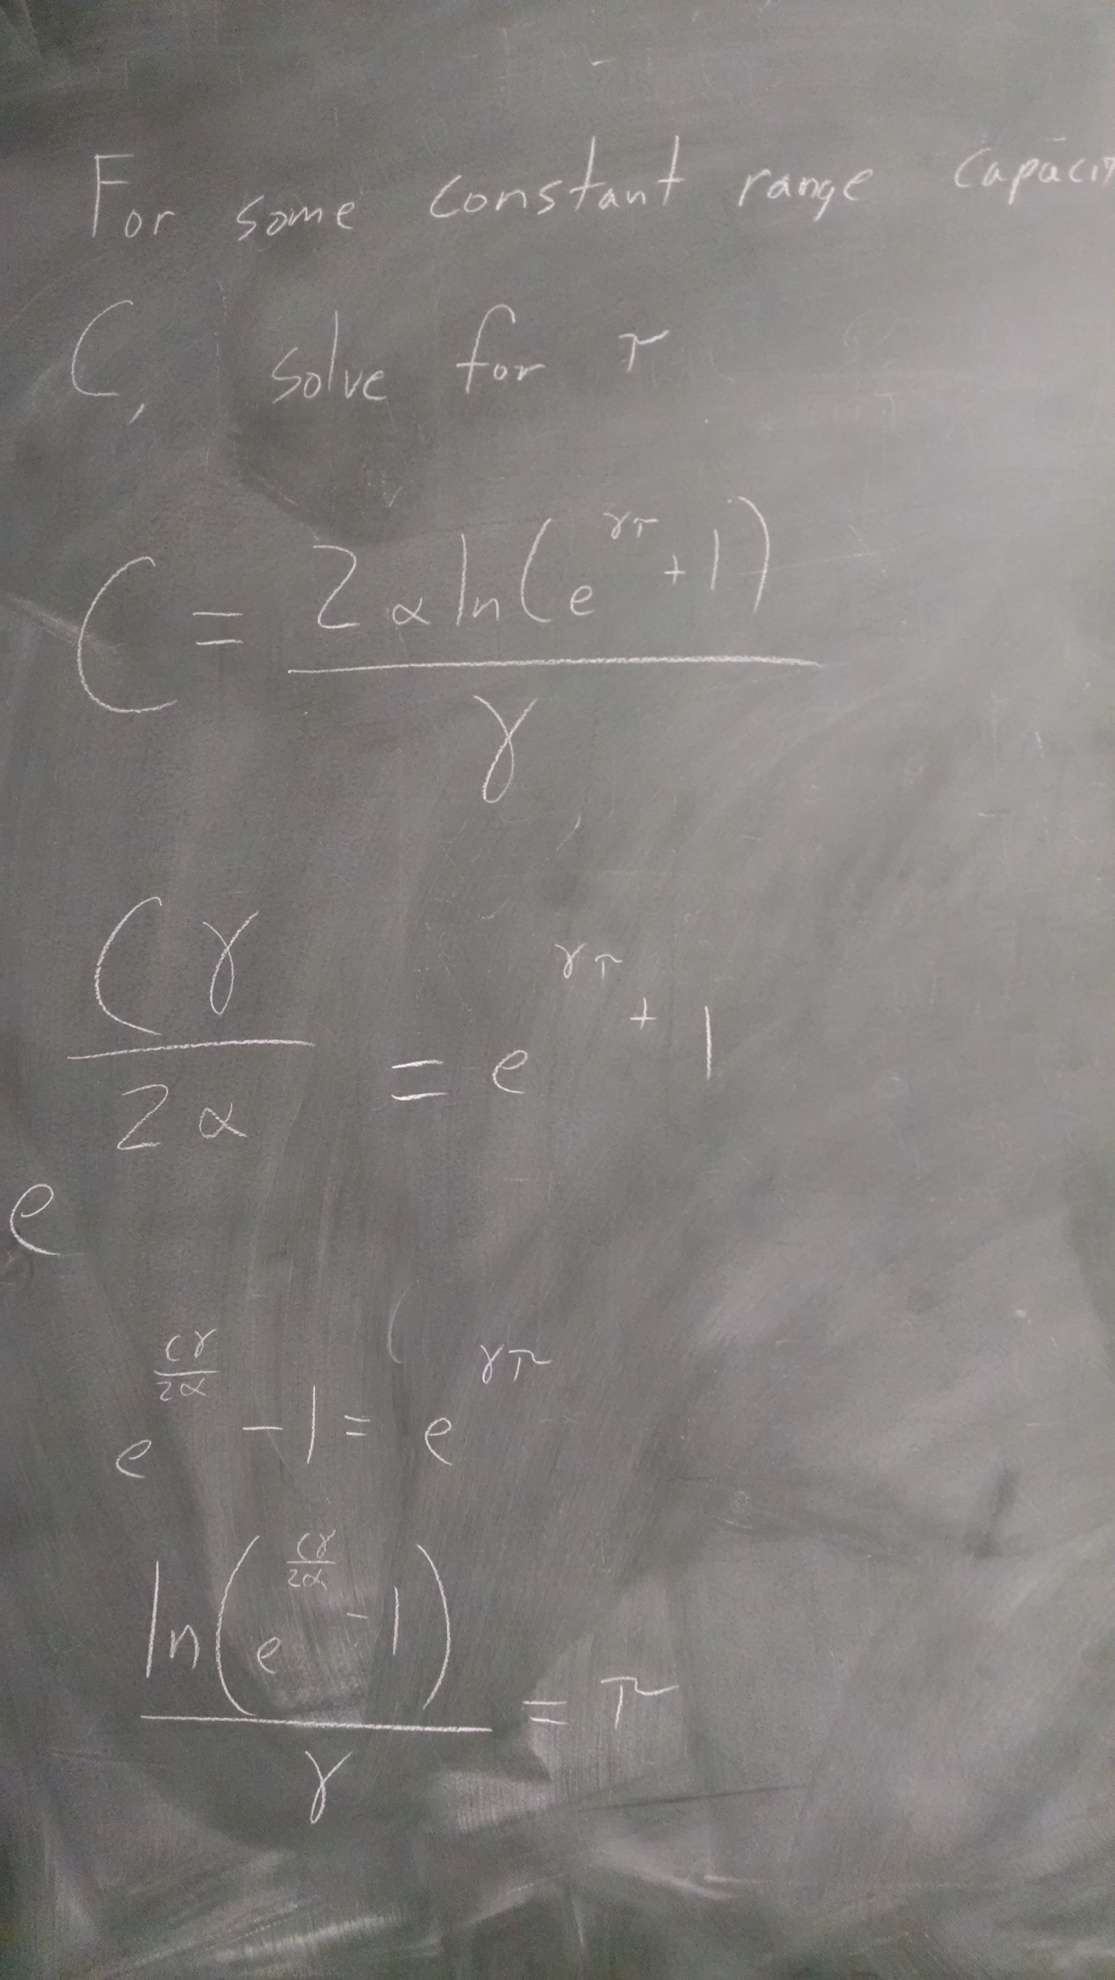 For some constant range capacit
C, solve for τ
C = 2α ln(e^γτ + 1) / γ
e^(Cγ / 2α) = e^γτ + 1
e^(Cγ / 2α) - 1 = e^γτ
ln(e^(Cγ / 2α) - 1) / γ = τ